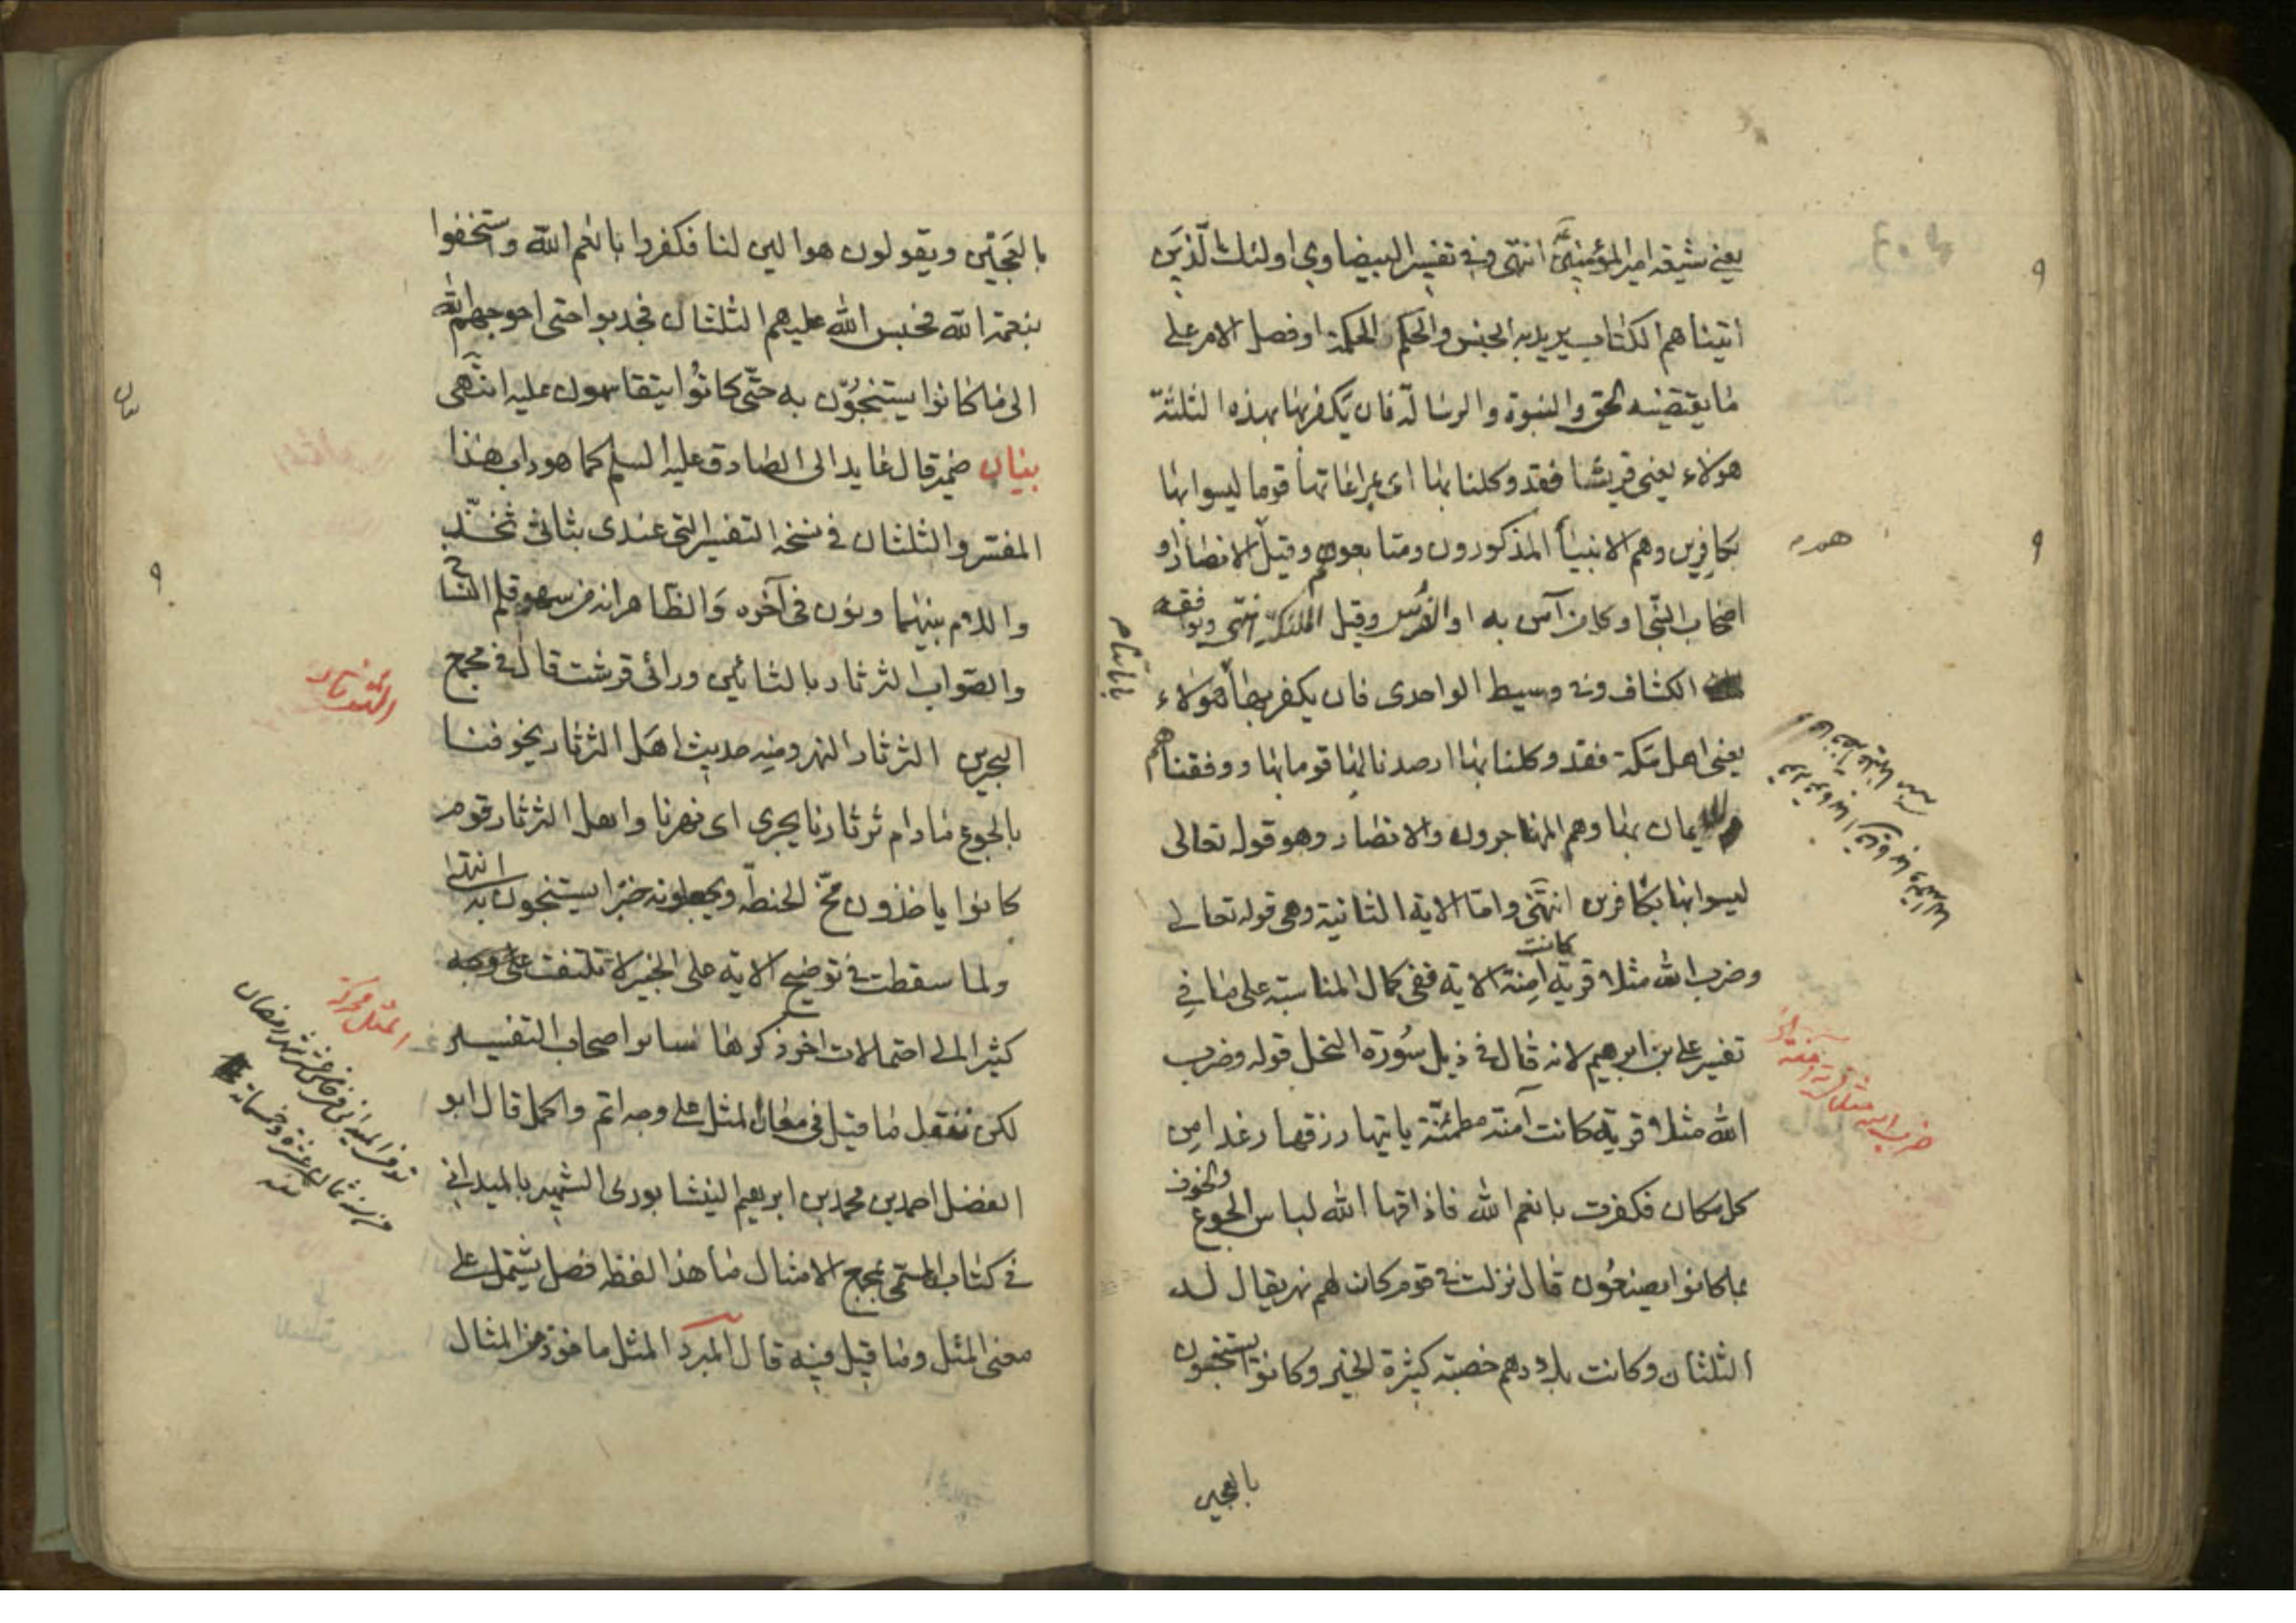 يعني شيعة امير المؤمنين انتهى وفي تفسير البيضاوي اولئك الّذين
اتيناهم الكتاب يريد به الجنس والحكم الحكمة او فصل الامر على
ما يقتضيه الحق والنبوة والرسالة فان يكفر بها بهذه الثلثة
هؤلاء يعني قريشا فقد وكلنا بها اى بمراعاتها قوما ليسوا بها
بكافرين وهم الانبياء المذكورون ومتابعوهم وقيل الانصار او
اصحاب النبي او كل من آمن به او الفرس وقيل الملئكة انتهى ويوافقه
الكشاف وفي وسيط الواحدى فان يكفر بها هؤلاء
يعنى اهل مكة فقد وكلنا بها ارصدنا لها قوما بها ووفقناهم
للايمان بها وهم المهاجرون والانصار وهو قوله تعالى
ليسوا بها بكافرين انتهى واما الاية الثانية وهى قوله تعالى
وضرب الله مثلا قرية كانت امنة الاية ففى كمال المناسبة على ما في
تفسير على بن ابرهيم لانه قال فى ذيل سورة النحل قوله وضرب
الله مثلا قرية كانت آمنة مطمئنّة ياتيها رزقها رغدا من
كل مكان فكفرت بانعم الله فاذاقها الله لباس الجوع والخوف
بما كانوا يصنعون قال نزلت في قوم كان لهم نهر يقال له
الثلثان وكانت بلادهم خصبة كثيرة الخير وكانوا يستنجون
بالعجين
بالعجين ويقولون هو الين لنا فكفروا بانعم الله واستخفوا
بنعمة الله فحبس الله عليهم الثلثان فجدبوا حتى احوجهم الله
الى ما كانوا يستنجون به حتّى كانوا يتقاسمون عليه انتهى
بيان ضمير قال عايد الى الصادق عليه السلم كما هو داب هذا
المفسّر والثلثان في نسخة التفسير التى عندى بثائى ثخذ
واللام بينهما ونون في آخره والظاهر انه من سهو قلم النساخ
والصواب الثرثار بالثائين ورائى قرشت قال في مجمع
البحرين الثرثار النهر ومنه حديث اهل الثرثار يخوفنا
بالجوع ما دام ثرثارنا يجرى اى نهرنا واهل الثرثار قوم
كانوا ياخذون مخ الحنطة ويجعلونه خبزا يستنجون به انتهى
ولما سقطت في توضيح الاية على الخبير لا تلتفت على وجه
كثيرا الى احتمالات اخر ذكرها اصحاب التفسير
لكن ننقل ما قيل في معنى المثل على وجه اتم واكمل قال ابو
الفضل احمد بن محمد بن ابرهيم النيشابورى الشهير بالميدانى
في كتاب المسمى بمجمع الامثال ما هذا لفظه فصل يشتمل على
معنى المثل وما قيل فيه قال المبرد المثل ماخوذ من المثال
بيان
الثرثار